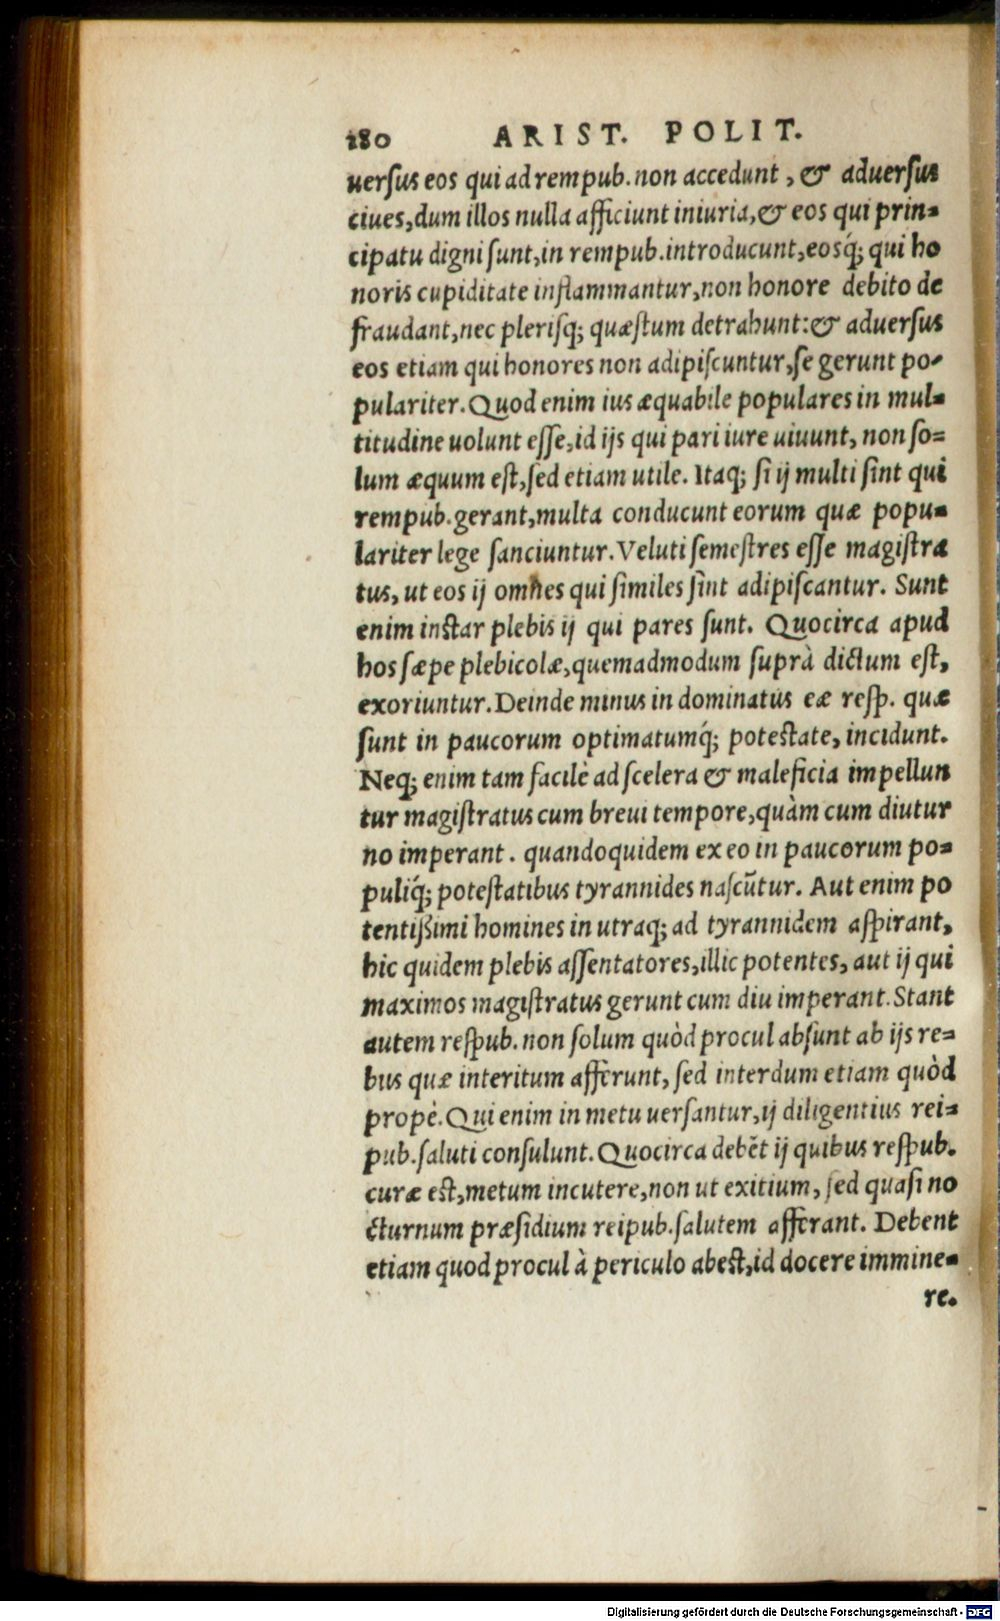 180 ARIST. POLIT.
uerſus eos qui ad rempub. non accedunt, & aduerſus
ciues, dum illos nulla afficiunt iniuria, & eos qui prin-
cipatu digni ſunt, in rempub. introducunt, eosq́; qui ho
noris cupiditate inflammantur, non honore debito de
fraudant, nec pleriſq; quæſtum detrahunt: & aduerſus
eos etiam qui honores non adipiſcuntur, ſe gerunt po-
pulariter. Quod enim ius æquabile populares in mul-
titudine uolunt eſſe, id ijs qui pari iure uiuunt, non ſo-
lum æquum eſt, ſed etiam utile. Itaq; ſi ij multi ſint qui
rempub. gerant, multa conducunt eorum quæ popu-
lariter lege ſanciuntur. Veluti ſemeſtres eſſe magiſtra
tus, ut eos ij omnes qui ſimiles ſint adipiſcantur. Sunt
enim inſtar plebis ij qui pares ſunt. Quocirca apud
hos ſæpe plebicolæ, quemadmodum ſuprà dictum eſt,
exoriuntur. Deinde minus in dominatus eæ reſp. quæ
ſunt in paucorum optimatumq́; poteſtate, incidunt.
Neq; enim tam facilè ad ſcelera & maleficia impellun
tur magiſtratus cum breui tempore, quàm cum diutur
no imperant. quandoquidem ex eo in paucorum po-
puliq́; poteſtatibus tyrannides naſcũtur. Aut enim po
tentißimi homines in utraq; ad tyrannidem aſpirant,
hic quidem plebis aſſentatores, illic potentes, aut ij qui
maximos magiſtratus gerunt cum diu imperant. Stant
autem reſpub. non ſolum quòd procul abſunt ab ijs re-
bus quæ interitum afferunt, ſed interdum etiam quòd
propè. Qui enim in metu uerſantur, ij diligentius rei-
pub. ſaluti conſulunt. Quocirca debẽt ij quibus reſpub.
curæ eſt, metum incutere, non ut exitium, ſed quaſi no
cturnum præſidium reipub. ſalutem afferant. Debent
etiam quod procul à periculo abeſt, id docere immine-
re.
Digitalisierung gefördert durch die Deutsche Forschungsgemeinschaft - DFG